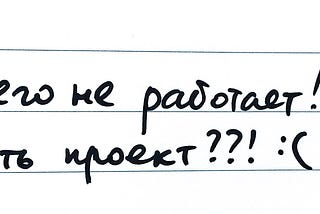 его не работает!
ть проект??! :(